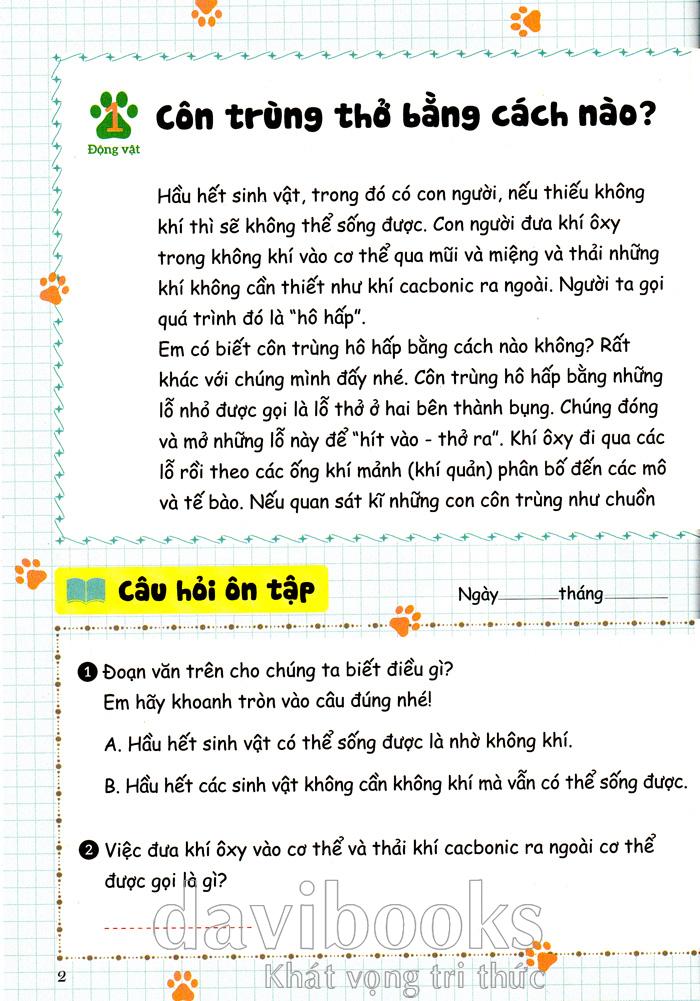 1
Động vật
Côn trùng thở bằng cách nào?
Hầu hết sinh vật, trong đó có con người, nếu thiếu không
khí thì sẽ không thể sống được. Con người đưa khí ôxy
trong không khí vào cơ thể qua mũi và miệng và thải những
khí không cần thiết như khí cacbonic ra ngoài. Người ta gọi
quá trình đó là “hô hấp”.
Em có biết côn trùng hô hấp bằng cách nào không? Rất
khác với chúng mình đấy nhé. Côn trùng hô hấp bằng những
lỗ nhỏ được gọi là lỗ thở ở hai bên thành bụng. Chúng đóng
và mở những lỗ này để “hít vào - thở ra”. Khí ôxy đi qua các
lỗ rồi theo các ống khí mảnh (khí quản) phân bố đến các mô
và tế bào. Nếu quan sát kĩ những con côn trùng như chuồn
Câu hỏi ôn tập
Ngày______tháng______
1 Đoạn văn trên cho chúng ta biết điều gì?
Em hãy khoanh tròn vào câu đúng nhé!
A. Hầu hết sinh vật có thể sống được là nhờ không khí.
B. Hầu hết các sinh vật không cần không khí mà vẫn có thể sống được.
2 Việc đưa khí ôxy vào cơ thể và thải khí cacbonic ra ngoài cơ thể
được gọi là gì?
davibooks
Khát vọng tri thức
2